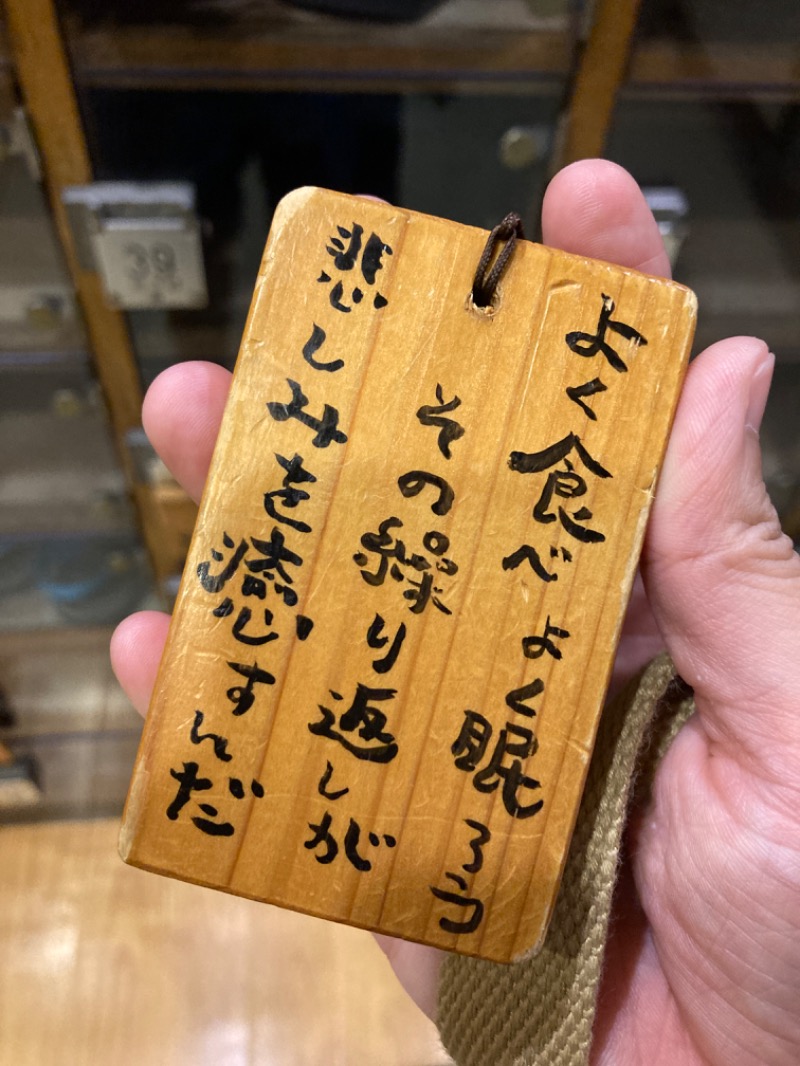 よく食べよく眠ろう
その繰り返しが
悲しみを癒すんだ
39